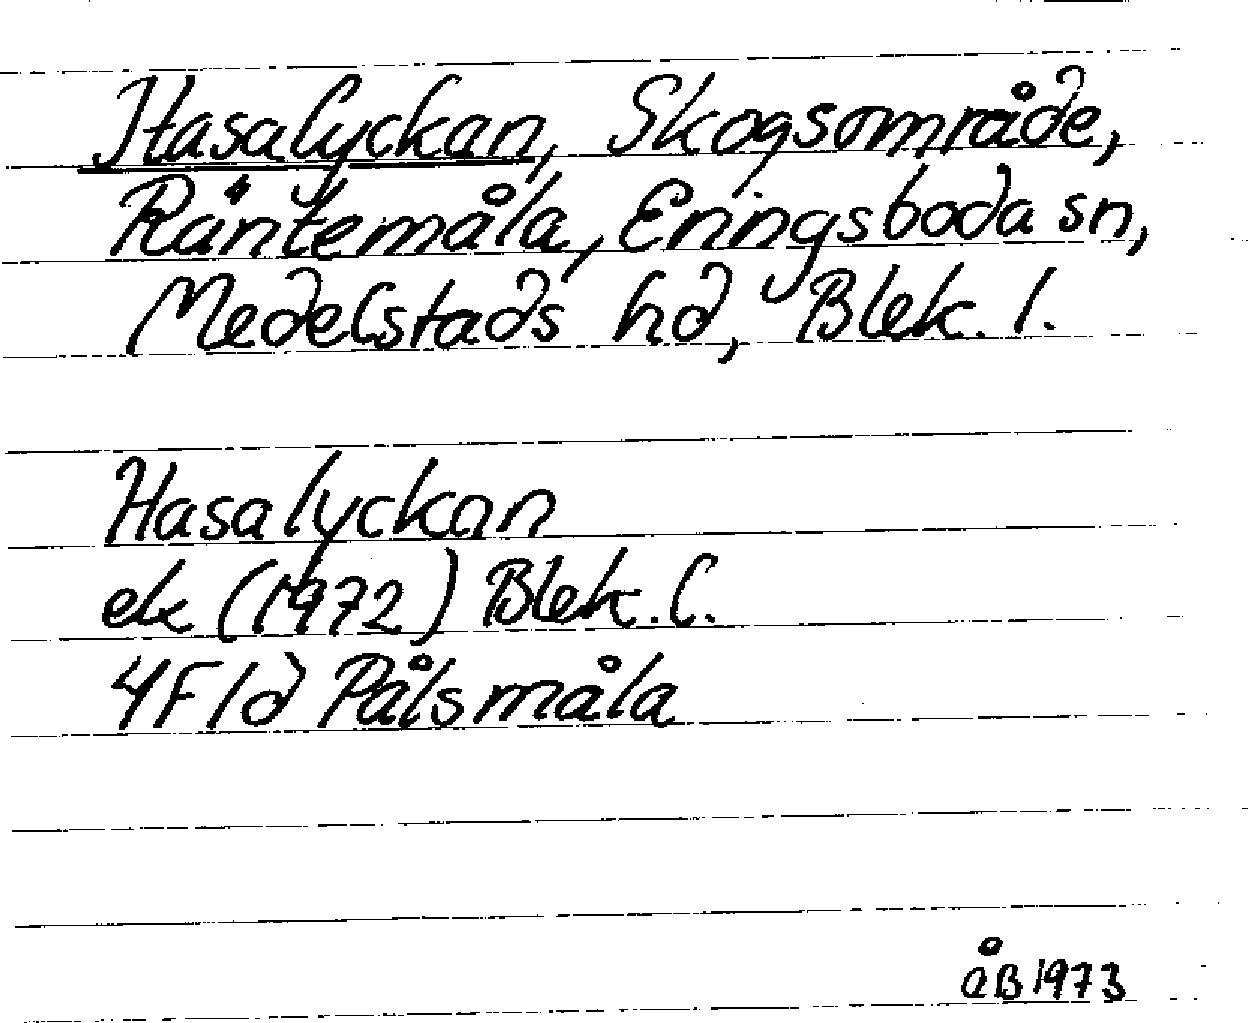 Hasalyckan, Skogsområde,
Räntemåla, Eringsboda sn,
Medelstads hd, Blek. l.
Hasalyckan
ek (1972) Blek. l.
4F1d Pålsmåla
åB 1973